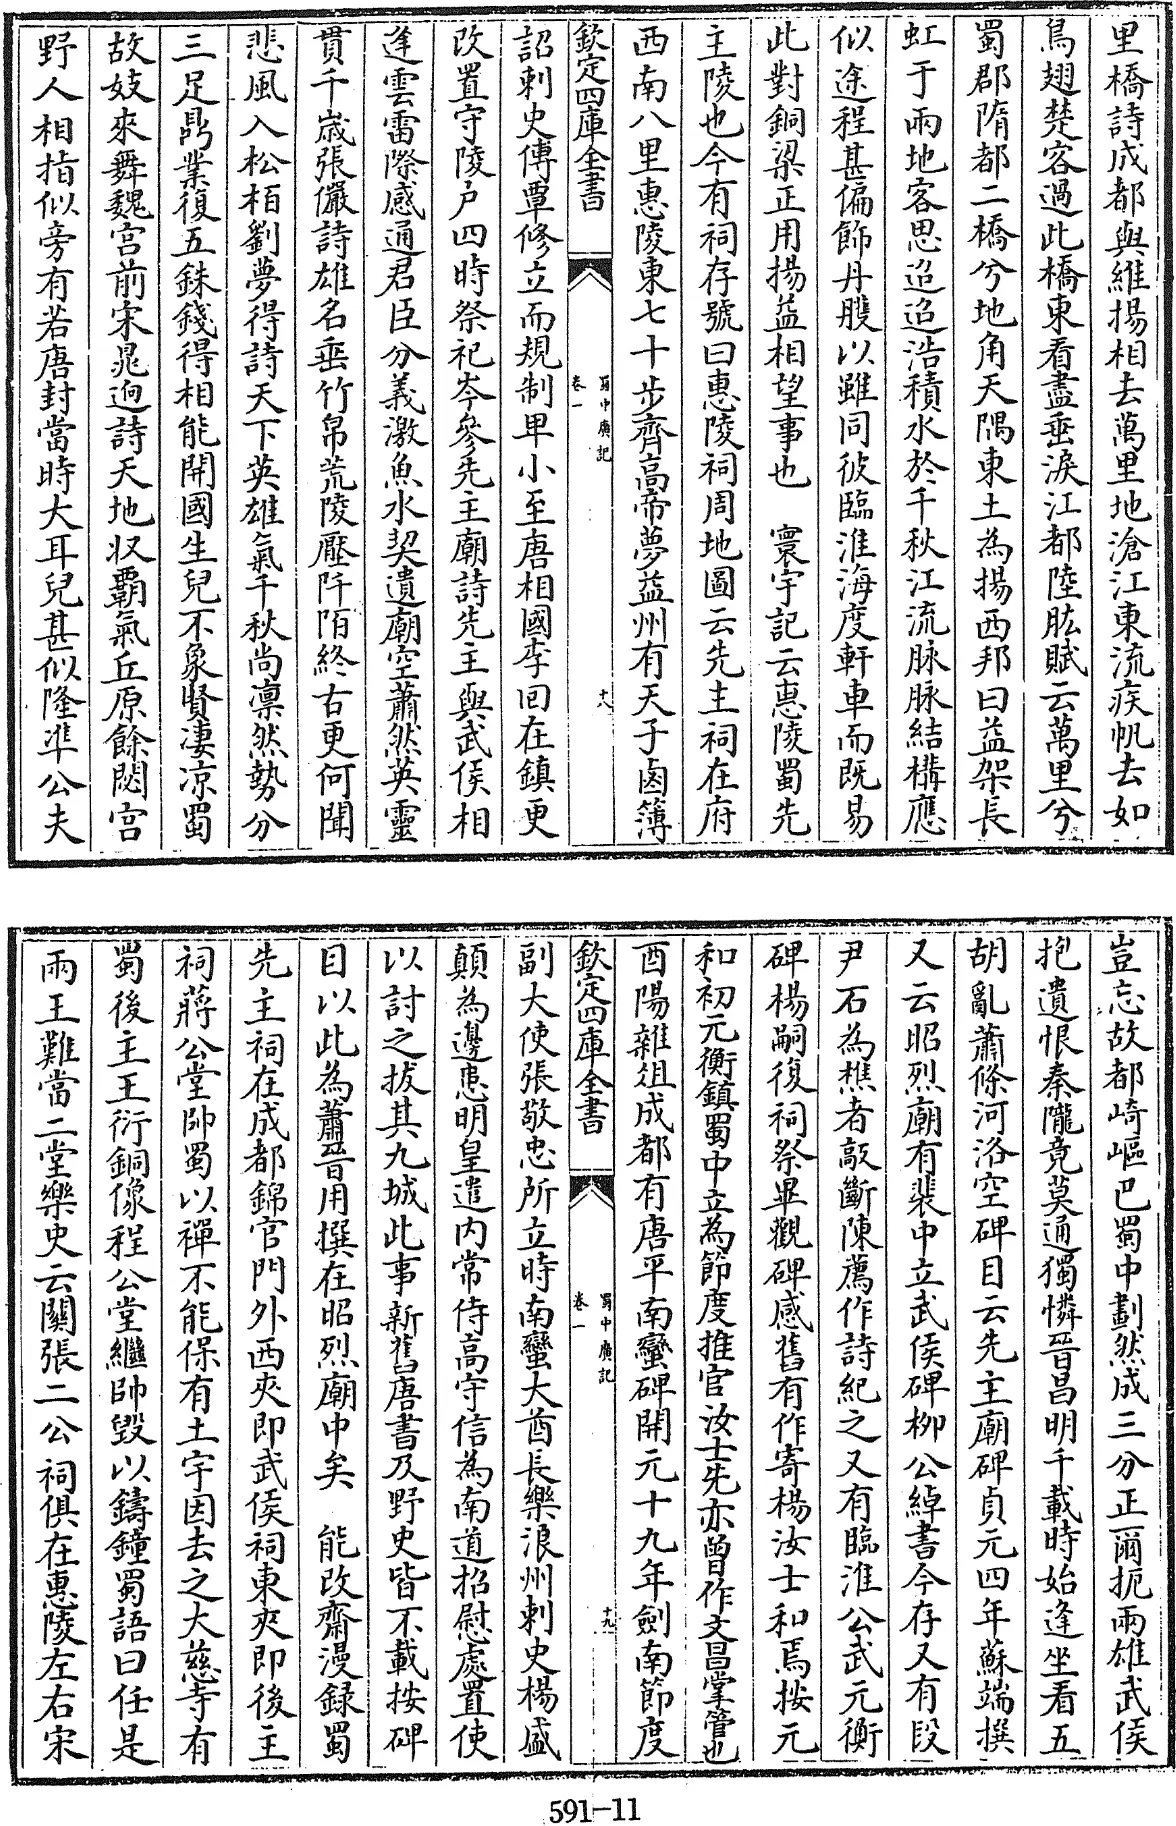 里橋詩成都與維揚相去萬里地滄江東流疾帆去如
鳥翅楚客過此橋東看盡垂淚江都陸肱賦云萬里兮
蜀郡隋都二橋兮地角天隅東土為揚西邦曰益架長
虹于兩地客思迢迢浩積水於千秋江流脉脉結構應
似途程甚偏飾丹雘以雖同彼臨淮海度軒車而既易
此對銅梁正用揚益相望事也　寰宇記云惠陵蜀先
主陵也今有祠存號曰惠陵祠周地圖云先主祠在府
西南八里惠陵東七十步齊高帝夢益州有天子鹵簿
欽定四庫全書
蜀中廣記
卷一
十八
詔刺史傅覃修立而規制卑小至唐相國李回在鎮更
改置守陵户四時祭祀岑參先主廟詩先主與武侯相
逢雲雷際感通君臣分義激魚水契遺廟空蕭然英靈
貫千歳張儼詩雄名垂竹帛荒陵壓阡陌終古更何聞
悲風入松栢劉夢得詩天下英雄氣千秋尚凛然勢分
三足鼎業復五銖錢得相能開國生兒不象賢凄凉蜀
故妓來舞魏宫前宋晁逈詩天地収覇氣丘原餘閟宫
野人相指似旁有若唐封當時大耳兒甚似隆準公夫
豈忘故都崎嶇巴蜀中劃然成三分正爾扼兩雄武侯
抱遺恨秦隴竟莫通獨憐晉昌明千載時始逢坐看五
胡亂蕭條河洛空碑目云先主廟碑貞元四年蘇端撰
又云昭烈廟有裴中立武侯碑栁公綽書今存又有段
尹石為樵者敲斷陳薦作詩紀之又有臨淮公武元衡
碑楊嗣復祠祭畢觀碑感舊有作寄楊汝士和焉按元
和初元衡鎮蜀中立為節度推官汝士先亦曾作文昌掌管也
酉陽雜俎成都有唐平南蠻碑開元十九年劍南節度
欽定四庫全書
蜀中廣記
卷一
十九
副大使張敬忠所立時南蠻大酋長樂浪州刺史楊盛
顛為邊患明皇遣内常侍高守信為南道招慰處置使
以討之拔其九城此事新舊唐書及野史皆不載按碑
目以此為蕭晉用撰在昭烈廟中矣　能改齋漫録蜀
先主祠在成都錦官門外西夾即武侯祠東夾即後主
祠蔣公堂帥蜀以禪不能保有土宇因去之大慈寺有
蜀後主王衍銅像程公堂繼帥毀以鑄鐘蜀語曰任是
兩王難當二堂樂史云關張二公祠俱在惠陵左右宋
591-11